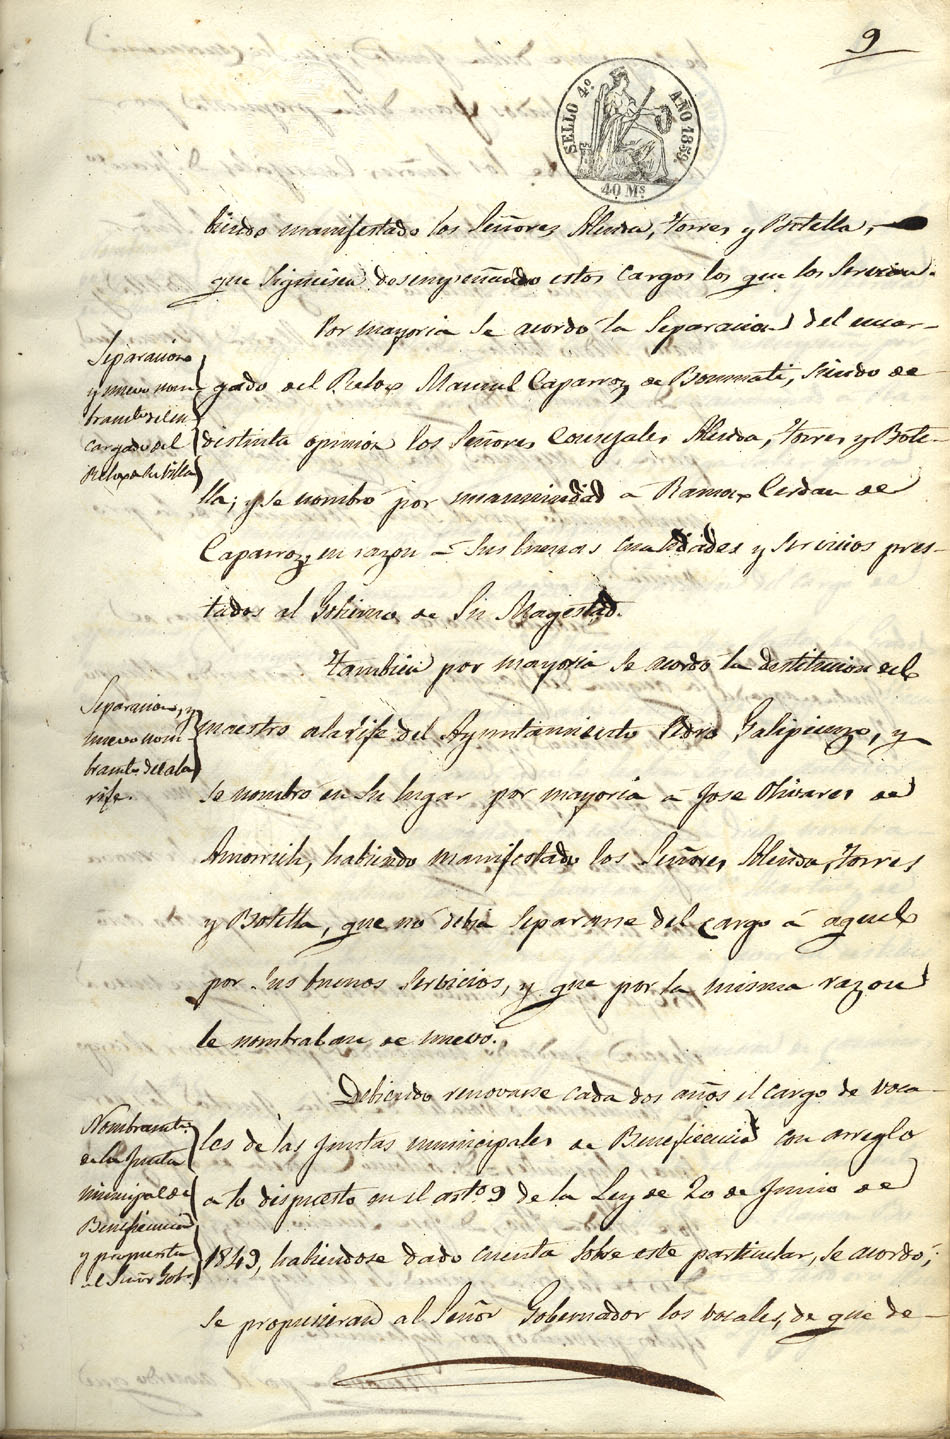 9
SELLO 4º AÑO 1859.
40 Ms
biendo manifestado los Señores Alenda, Torres y Botella,
que siguiesen desempeñando estos cargos los que los servian.
Por mayoria se acordó la separacion del encar-
Separacion
y nuevo nom-
bramto del en-
cargado del
Relox de la Villa
gado del Relox Manuel Caparroz de Bonmati, siendo de
distinta opinion los Señores Concejales Alenda, Torres y Bote-
lla; y se nombró por unanimidad á Ramon Cerdan de
Caparroz, en razon á sus buenas cualidades y servicios pres-
tados al Gobierno de Su Magestad.
Tambien por mayoria se acordó la destitucion del
Separacion, y
nuevo nom-
bramto del ala-
rife.
maestro alarife del Ayuntamiento Pedro Galipienzo, y
se nombró en su lugar por mayoria á Jose Olivares de
Amorrich, habiendo manifestado los Señores Alenda, Torres
y Botella, que nó debia separarse del cargo á aquel
por sus buenos servicios, y que por la misma razon
le nombraban de nuevo.
Debiendo renovarse cada dos años el cargo de voca-
Nombramto
de la Junta
municipal de
Beneficencia
y propuesta
al Señor Gobr
les de las Juntas municipales de Beneficencia con arreglo
a lo dispuesto en el arto 9 de la Ley de 20 de Junio de
1849, habiendose dado cuenta sobre este particular, se acordó;
se propusieran al Señor Gobernador los vocales, de que de-